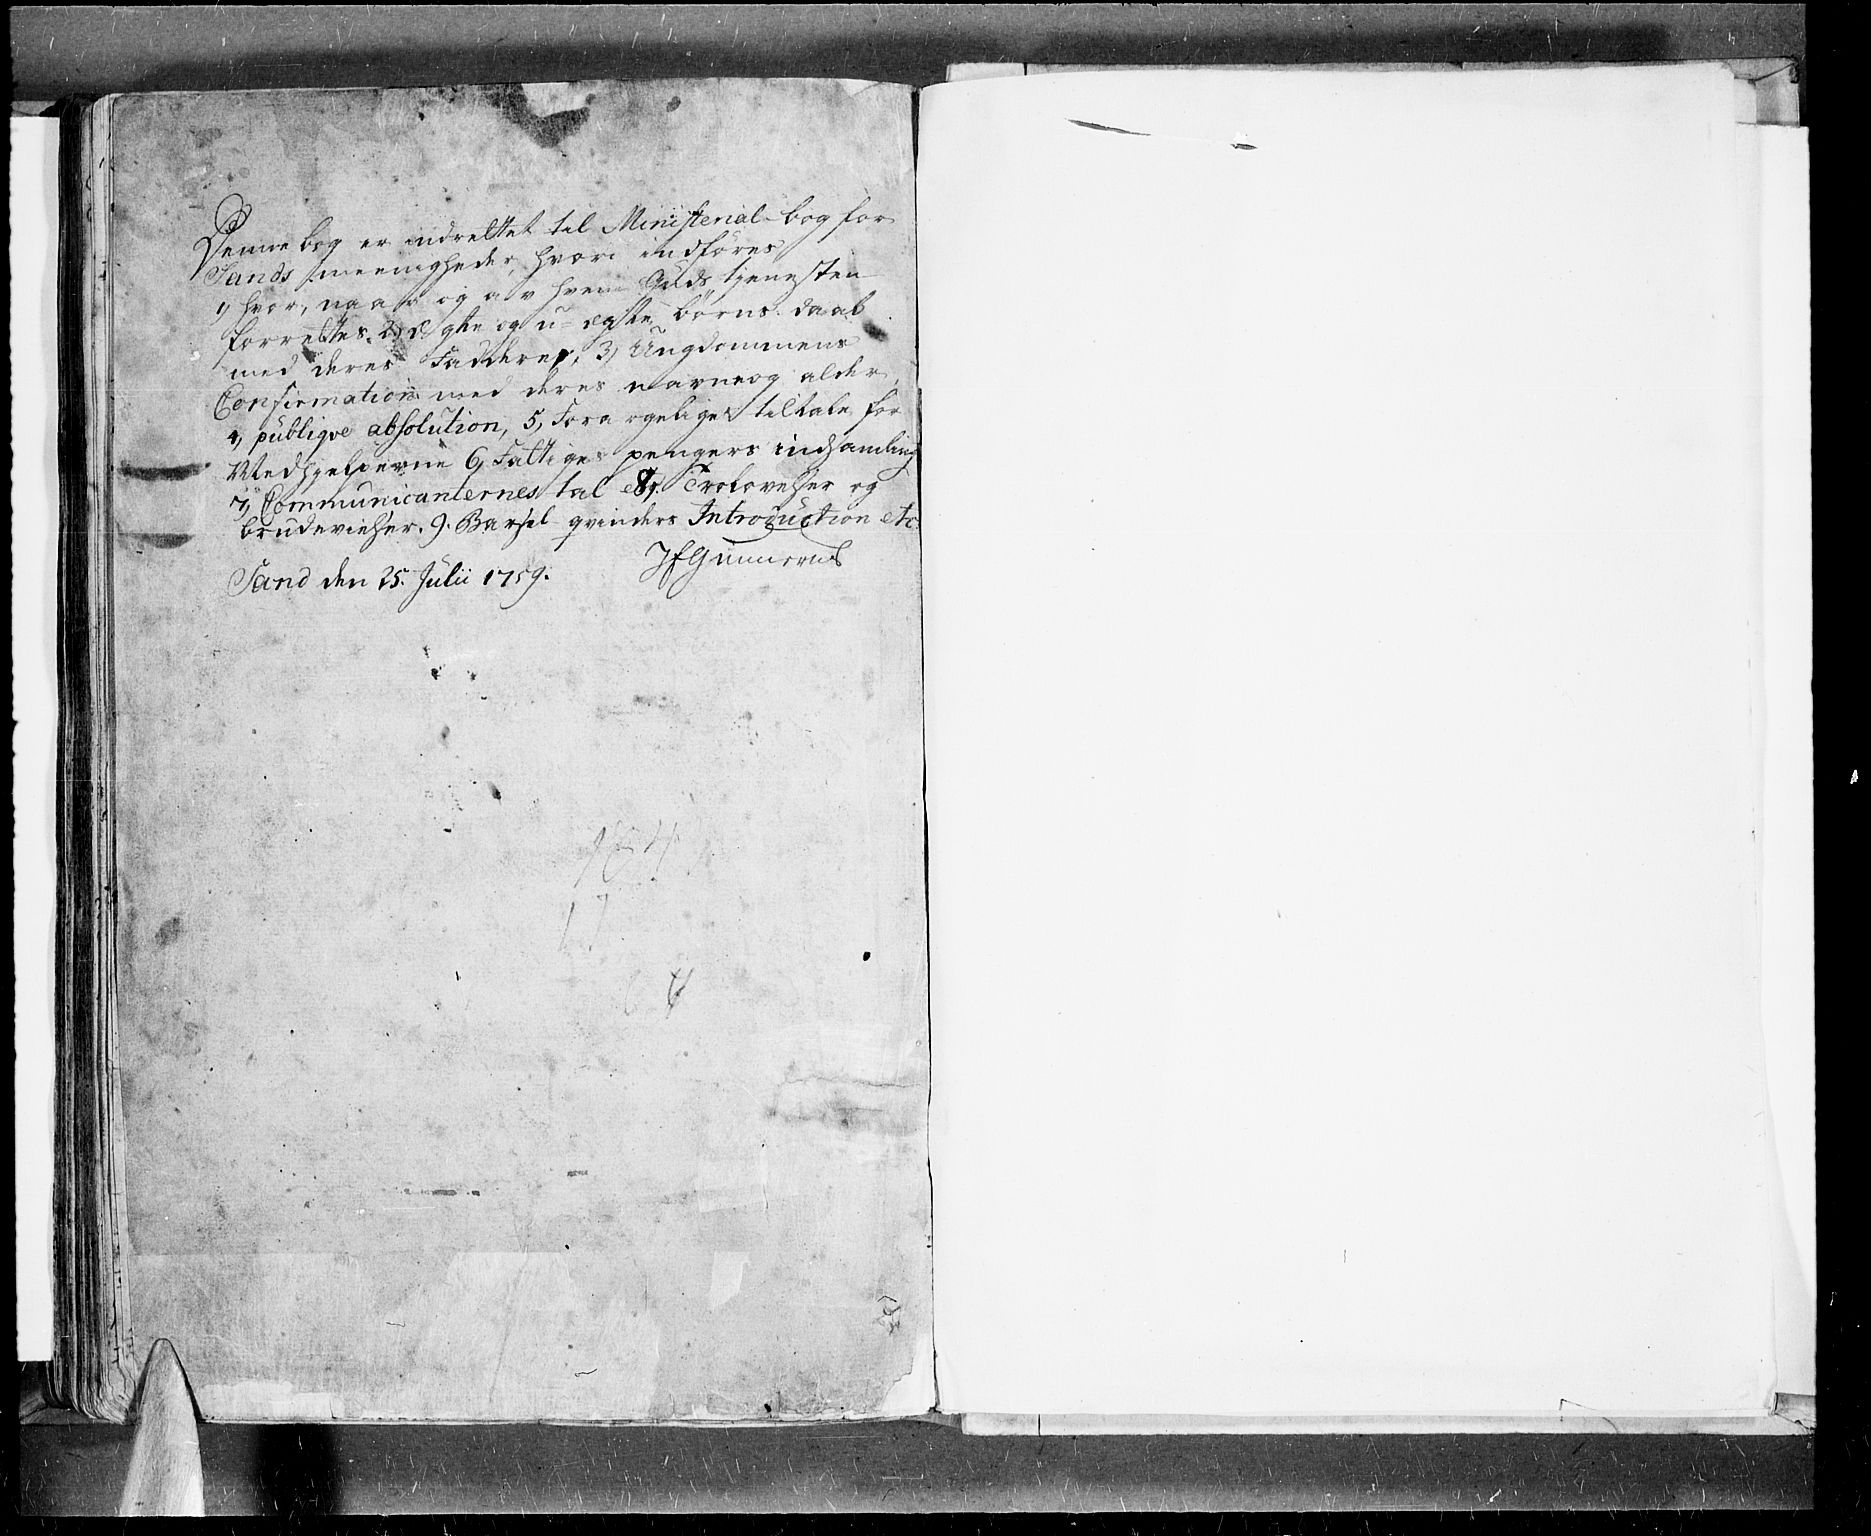 Denne bog er indrettet til Ministerial-bog for
Sands meenigheder, hvori indføres
1, hvor, naar og av hvem Guds tjenesten
forrettes. 2, Ægte og u-ægte børns daab
med deres Faddere, 3, Ungdommens
Confirmation med deres navne og alder,
4, publiqve absolution, 5, Foraargelige tiltale for
Medhjelperne 6, Fattiges pengers indsamling
7, Communicanternes tal 8, Trolovelser og
brudevielser. 9. Barsel qvinders Introduction etc.
Sand den 25. Julii 1759. JfGunnerus